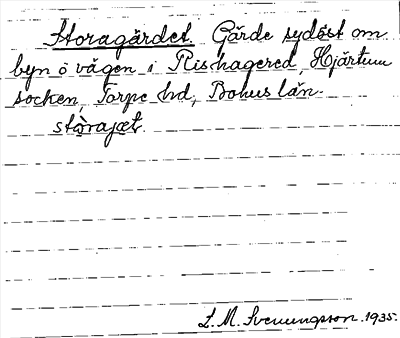 Storagärdet. Gärde sydöst om
byn ö vägen i Rishagered, Hjärtum
socken, Torpe hd, Bohus län.
stòrajæt.
L. M. Svenungsson. 1935.